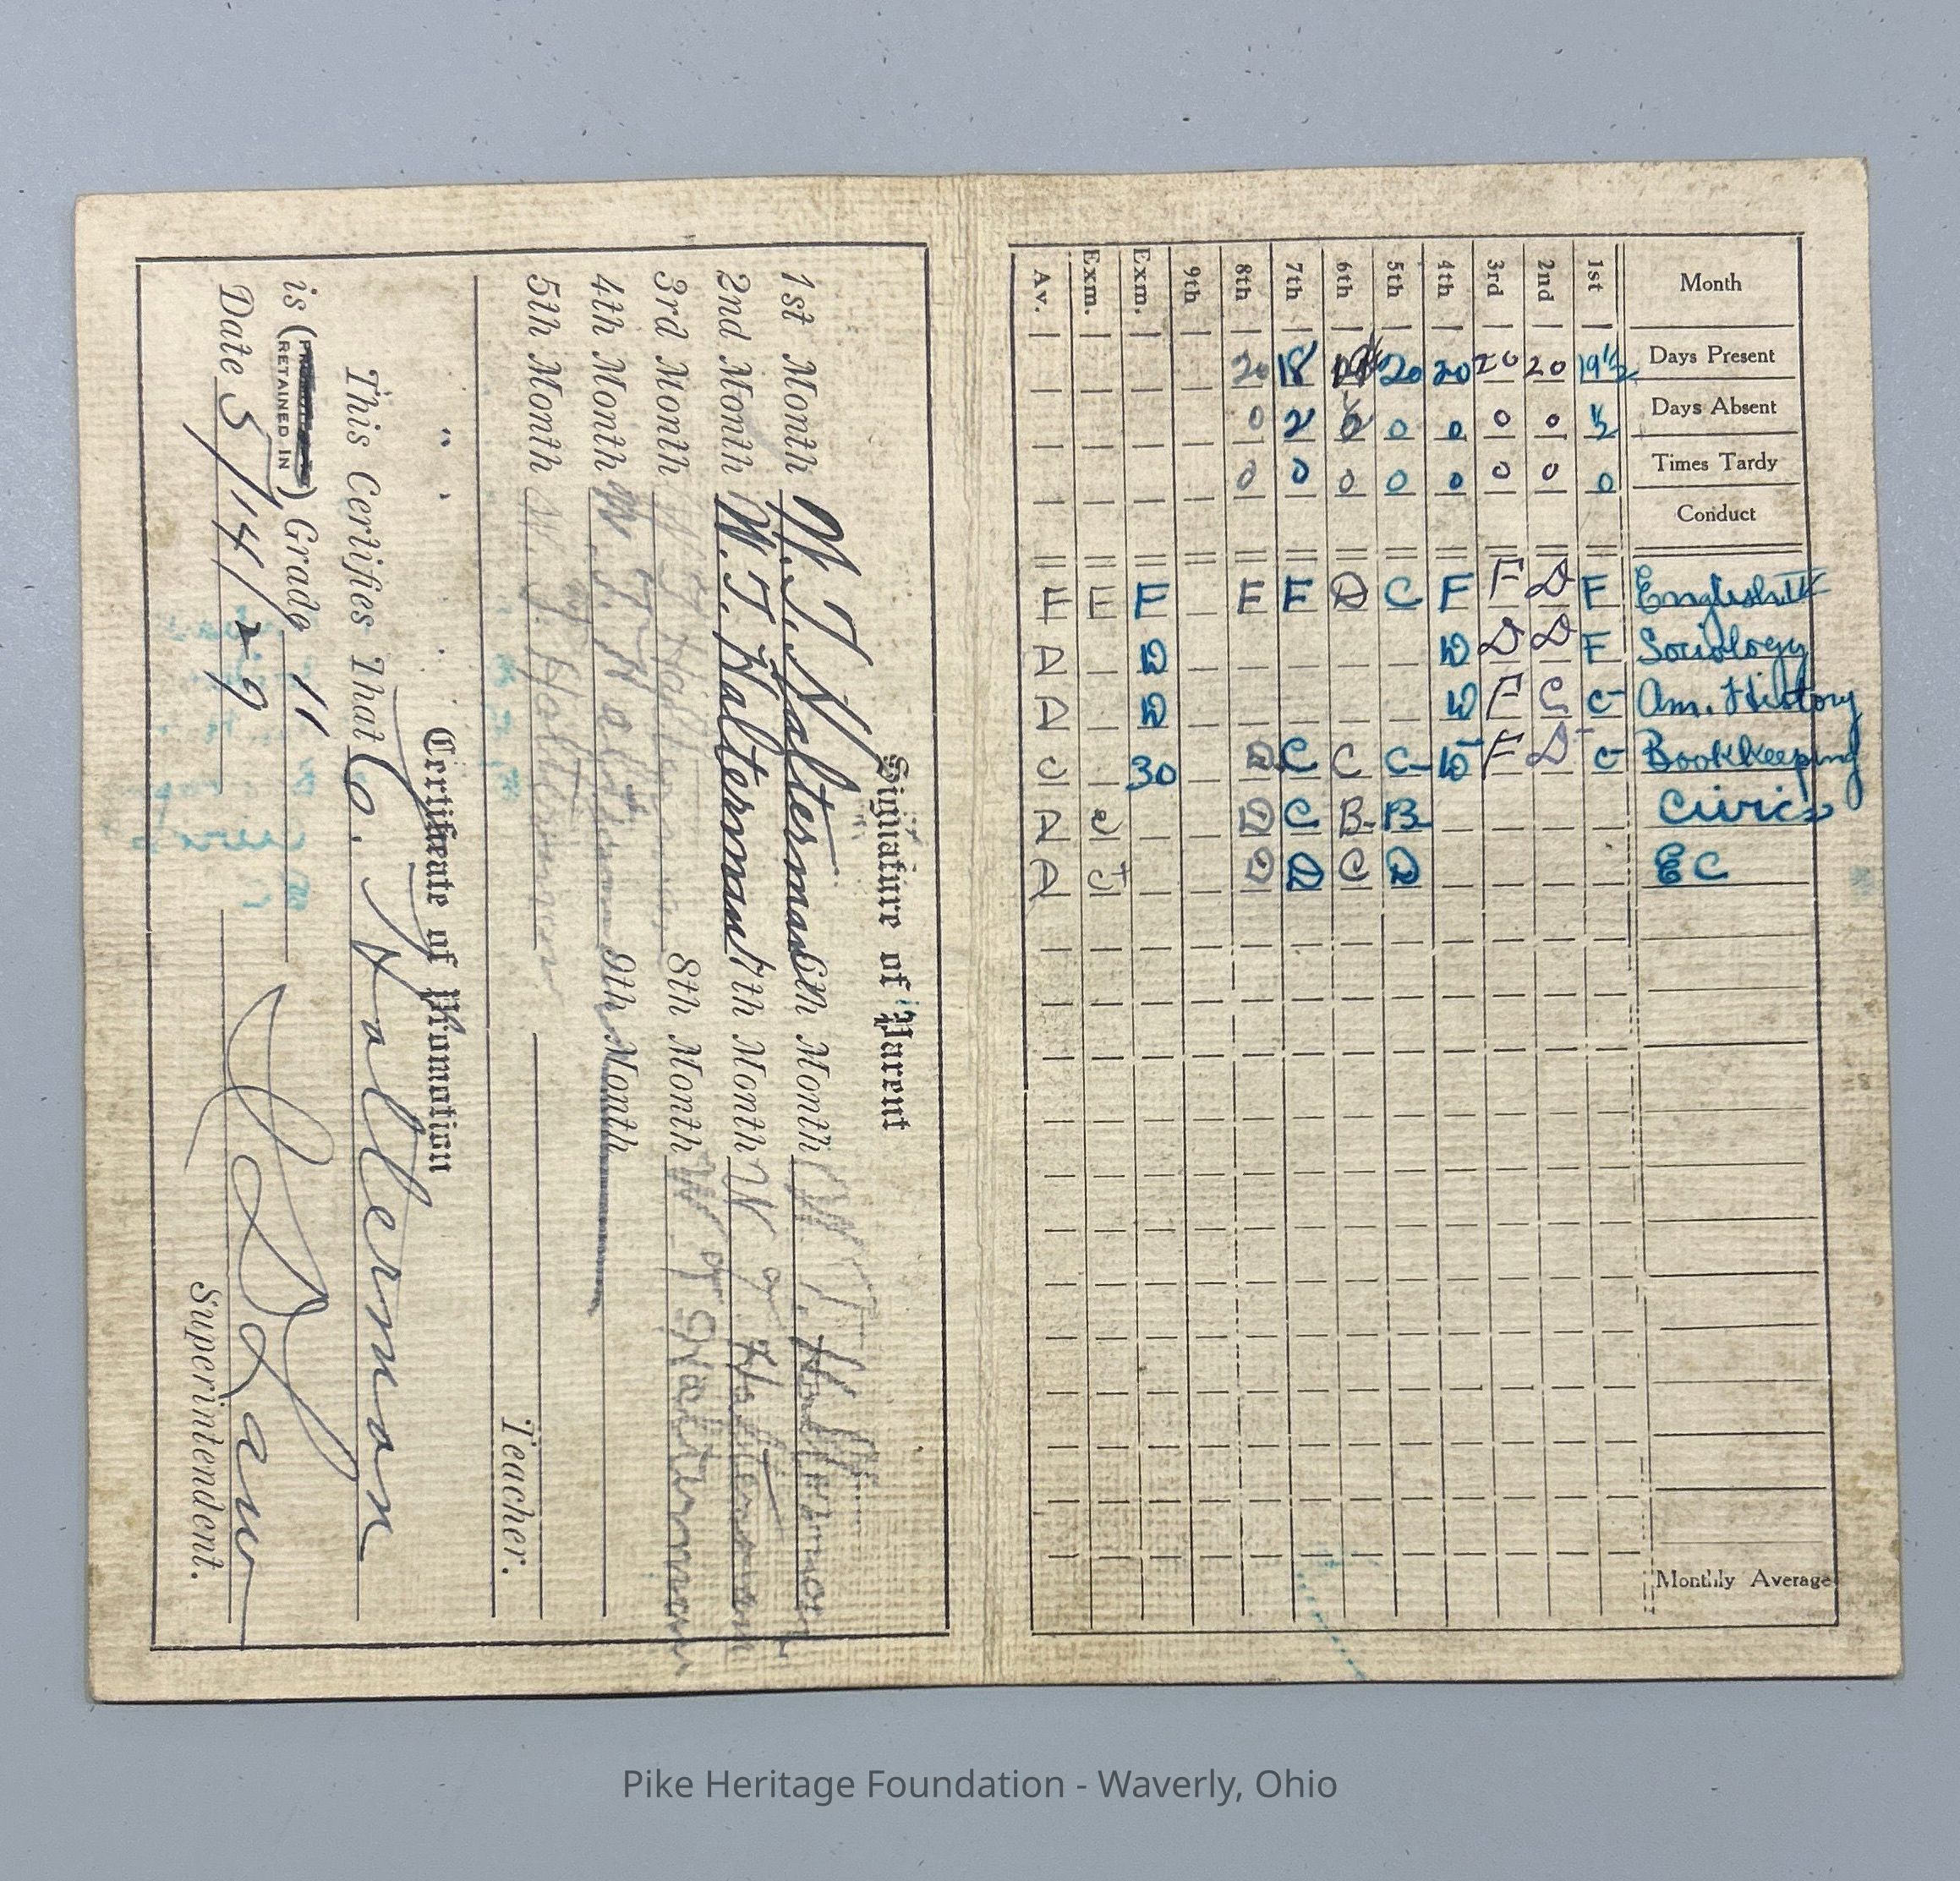 Signature of Parent
1st Month W. T. Halterman 6th Month W. T. Halterman
2nd Month W. T. Halterman 7th Month W T Halterman
3rd Month 8th Month W T Halterman
4th Month W. T. Halterman 9th Month
5th Month W. T. Halterman
Teacher.
Certificate of Promotion
This Certifies That C. Halterman
is (RETAINED IN) Grade 11
Date 5/14/29
Superintendent.
Month 1st 2nd 3rd 4th 5th 6th 7th 8th 9th Exm. Exm. Av.
Days Present 19½ 20 20 20 20 18 20
Days Absent ½ 0 0 0 0 ½ 2 0
Times Tardy 0 0 0 0 0 0 0 0
Conduct
English F D F F C D F F F E E
Sociology F D D D D D
Am. History C- C F D D D
Bookkeeping C- D- F D- C- C C D 30 C
Civics B- B- C D C D
EC D C D D D
Monthly Average
Pike Heritage Foundation - Waverly, Ohio